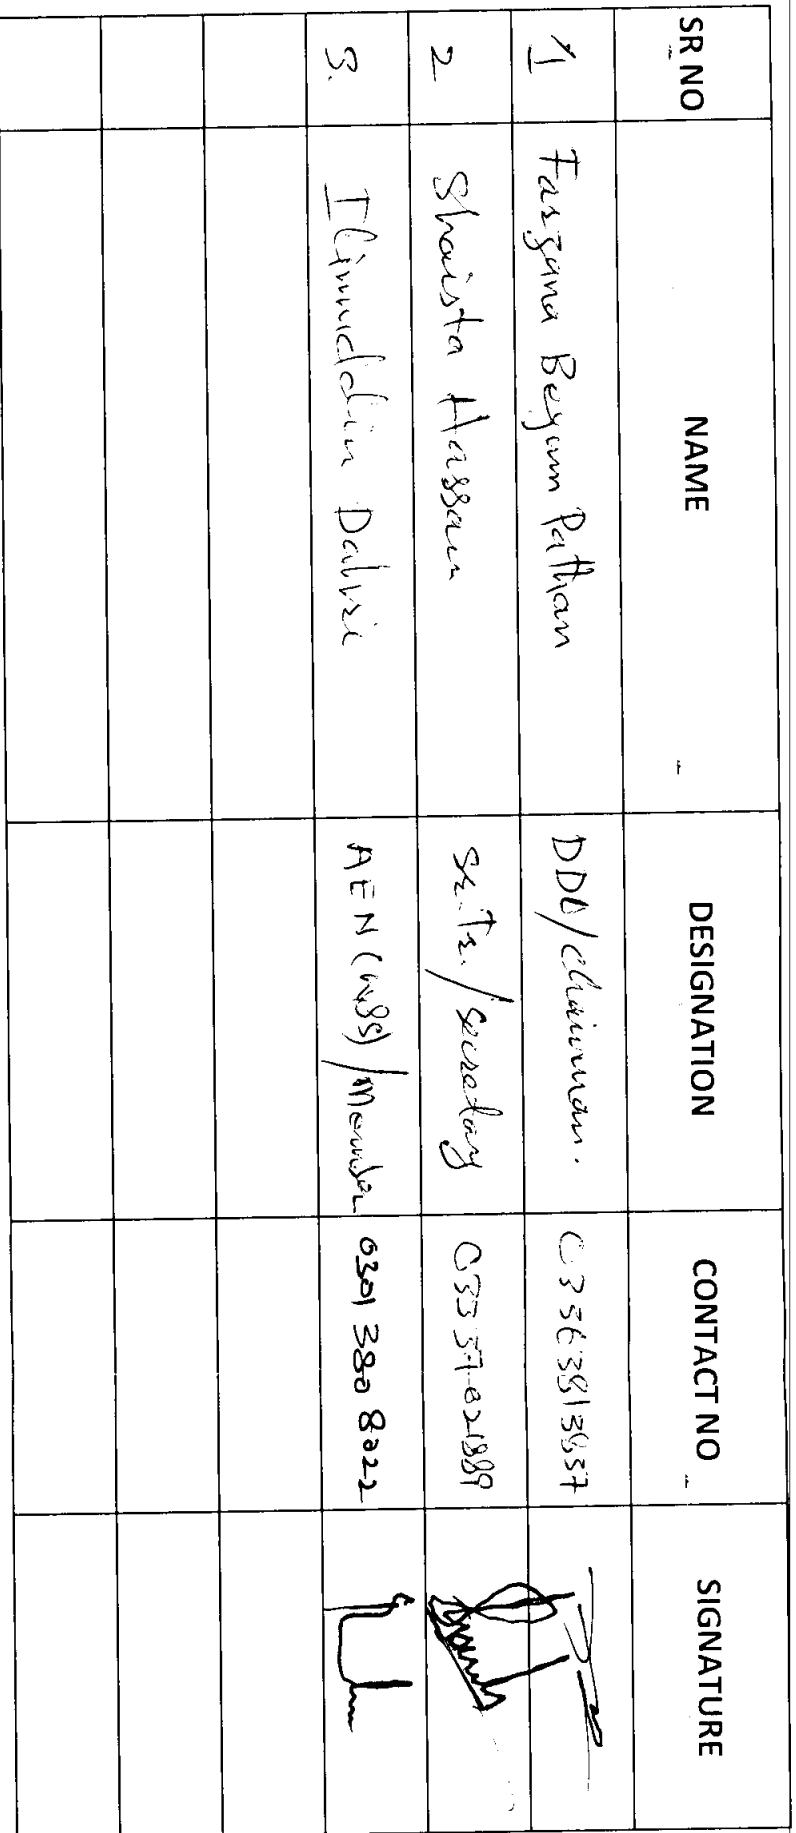 SR NO NAME DESIGNATION CONTACT NO SIGNATURE
1 Farzana Begum Pathan DDO/Chairman.
2 Shaista Hassan Sr.Tr./Secretary 03337021889
3. Ilimuddin Dahri AEN(WSS)/Member 0301 380 8022